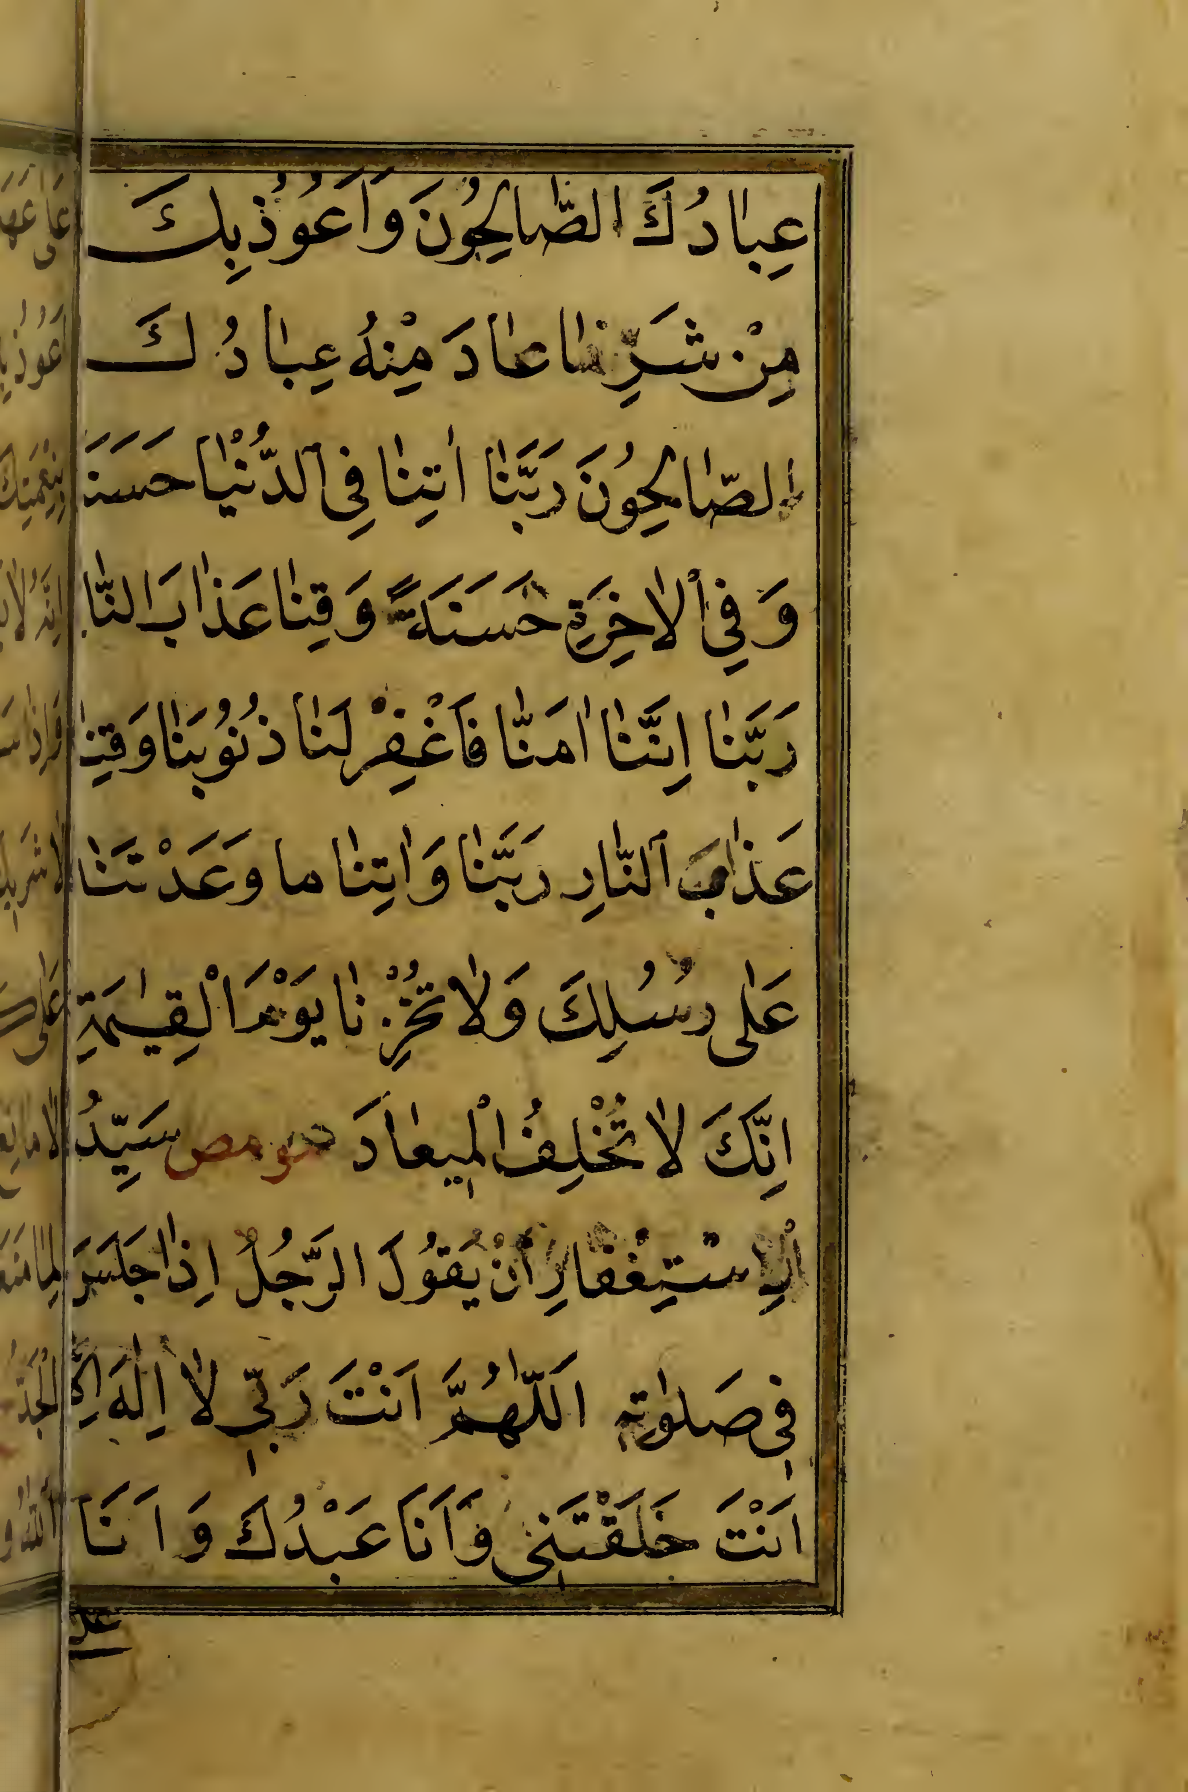 عِبٰادُكَ الصّٰالِحُونَ وَاَعُوُذُبِكَ
مِنْ شَرِّ مٰا عٰاذَ مِنْهُ عِبٰادُكَ
الصّٰالِحِوُنَ رَبَّنٰا اٰتِنٰا فِى الدُّنْيٰا حَسَنَ
وَ فِى اْلاٰخِرَةِ حَسَنَةً وَ قِنٰا عَذٰابَ النّٰا
رَبَّنٰا اِنَّنٰا اٰمَنّٰا فَاَغْفِرْ لَنٰا ذُنُوُبَنٰا وَ قِنٰا
عَذٰابَ النّٰارِ رَبَّنٰا وَ اٰتِنٰا ما وَعَدْتَنٰا
عَلٰى رُسُلِكَ وَلاٰ تُخْزِنٰا يَوْمَ الْقِيٰمَةِ
اِنَّكَ لاٰ تُخْلِفُ الْمِيعٰادَ مو مص سَيِّدُ
اْلاِسْتِغْفٰارِ اَنْ يَقُولَ الرَّجُلُ اِذٰا جَلَسَ
فِى صَلٰوتِهِ اَللّٰهُمَّ اَنْتَ رَبِّى لاٰ اِلٰهَ اِلاّٰ
اَنْتَ خَلَقْتَنِى وَ اَنَا عَبْدُكَ وَ اَنَا
على